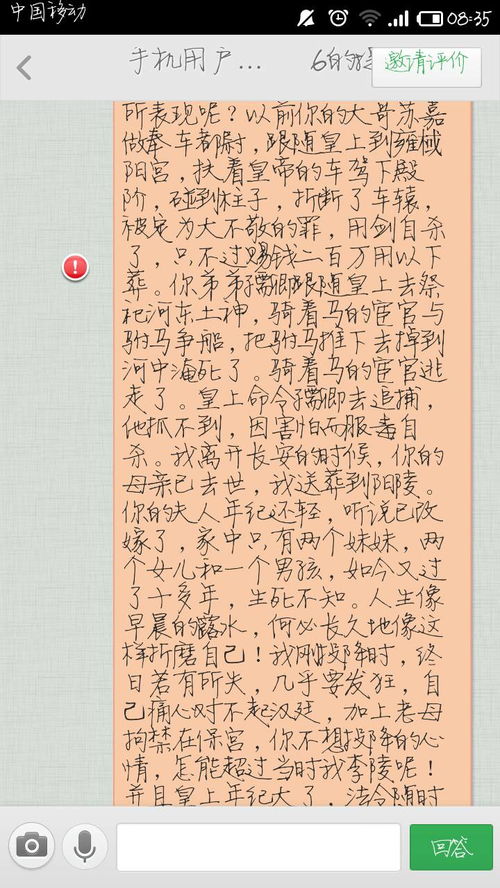 中国移动 08:35
手机用户... 6的
邀请评价
所表现呢？以前你的大哥苏嘉
做奉车都尉，跟随皇上到雍棫
阳宫，扶着皇帝的车驾下殿
阶，碰到柱子，折断了车辕，
被定为大不敬的罪，用剑自杀
了，只不过赐钱二百万用以下
葬。你弟弟孺卿跟随皇上去祭
祀河东土神，骑着马的宦官与
驸马争船，把驸马推下去掉到
河中淹死了。骑着马的宦官逃
走了。皇上命令孺卿去追捕，
他抓不到，因害怕而服毒自
杀。我离开长安的时候，你的
母亲已去世，我送葬到阳陵。
你的夫人年纪还轻，听说已改
嫁了，家中只有两个妹妹，两
个女儿和一个男孩，如今又过
了十多年，生死不知。人生像
早晨的露水，何必长久地像这
样折磨自己！我刚投降时，终
日若有所失，几乎要发狂，自
己痛心对不起汉廷，加上老母
拘禁在保宫，你不想投降的心
情，怎能超过当时我李陵呢！
并且皇上年纪大了，法令随时
回答